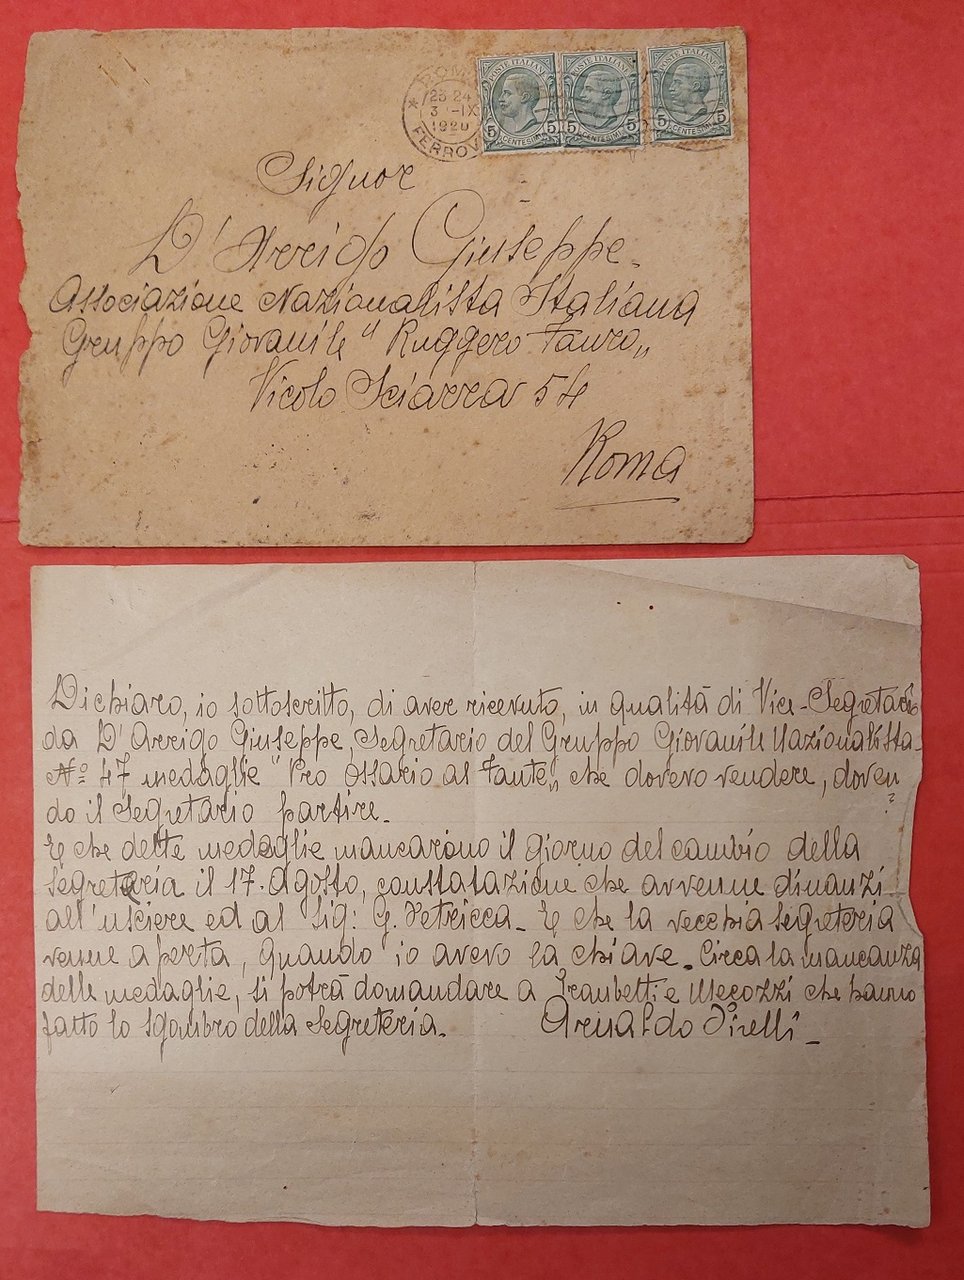 ROMA
23 24
3 -IX
1920
FERROV
POSTE ITALIANE
5 CENTESIMI 5
POSTE ITALIANE
5 CENTESIMI 5
POSTE ITALIANE
5 CENTESIMI 5
Signor
D'Arrigo Giuseppe
Associazione Nazionalista Italiana
Gruppo Giovanile "Ruggero Fauro„
Vicolo Sciarra 54
Roma
Dichiaro, io sottoscritto, di aver ricevuto, in qualità di Vice-Segretario
da D'Arrigo Giuseppe, Segretario del Gruppo Giovanile Nazionalista
Nº 47 medaglie "Pro Ossario al Fante„ che dovevo vendere, doven
do il Segretario partire.
E che dette medaglie mancarono il giorno del cambio della
segreteria il 17. Agosto, constatazione che avvenne dinanzi
all'usciere ed al Sig: G. Petricca_ E che la vecchia segreteria
venne aperta, quando io avevo la chiave. Circa la mancanza
delle medaglie, si potrà domandare a Trambetti e Mecozzi che hanno
fatto lo sgombro della segreteria. Arnaldo Pirelli_